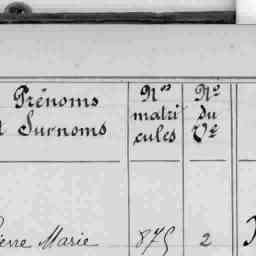 Prénoms
Surnoms
Nos
matri
cules
No
du
Vt
Marie 875 2